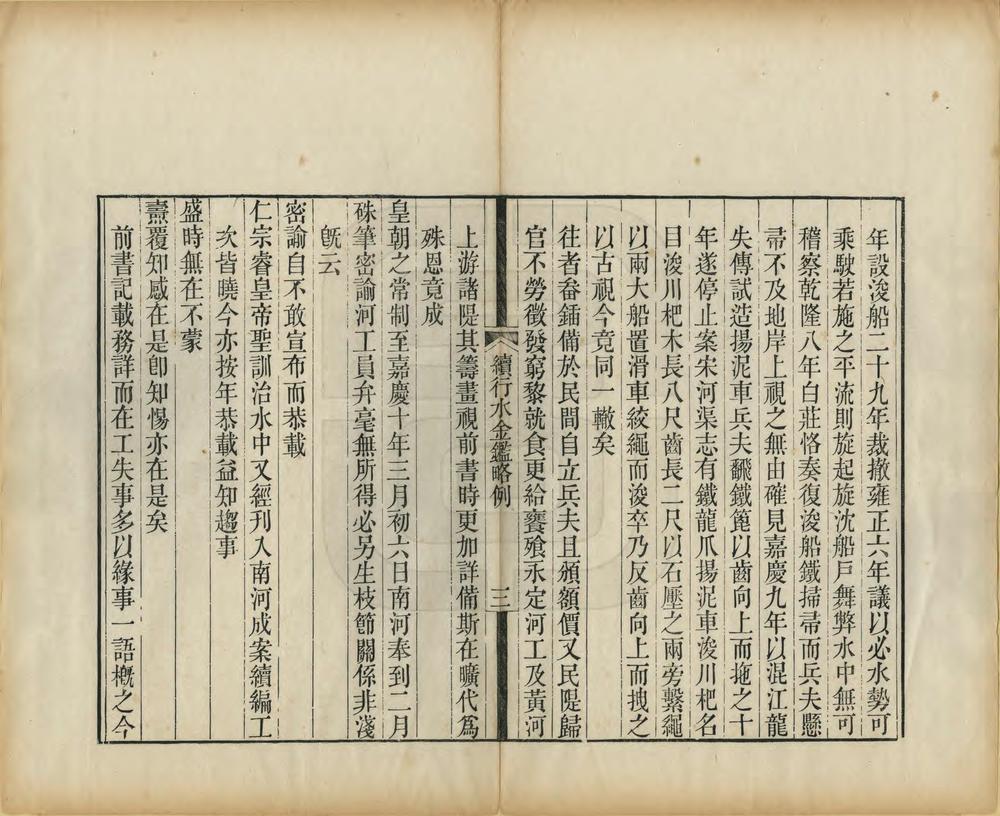 年設浚船二十九年裁撤雍正六年議以必水勢可
乘駛若施之平流則旋起旋沈船戶舞弊水中無可
稽察乾隆八年白莊恪奏復浚船鐵掃帚而兵夫懸
帚不及地岸上視之無由確見嘉慶九年以混江龍
失傳試造揚泥車兵夫飜鐵篦以齒向上而拖之十
年遂停止案宋河渠志有鐵龍爪揚泥車浚川杷名
目浚川杷木長八尺齒長二尺以石壓之兩旁繫繩
以兩大船置滑車絞繩而浚卒乃反齒向上而拽之
以古視今竟同一轍矣
往者畚鍤備於民間自立兵夫且頒額價又民隄歸
官不勞徵發窮黎就食更給饔飱永定河工及黃河
續行水金鑑略例 三
上游諸隄其籌畫視前書時更加詳備斯在曠代爲
殊恩竟成
皇朝之常制至嘉慶十年三月初六日南河奉到二月
硃筆密諭河工員弁毫無所得必另生枝節關係非淺
旣云
密諭自不敢宣布而恭載
仁宗睿皇帝聖訓治水中又經刊入南河成案續編工
次皆曉今亦按年恭載益知趨事
盛時無在不蒙
燾覆知感在是卽知惕亦在是矣
前書記載務詳而在工失事多以緣事一語概之今